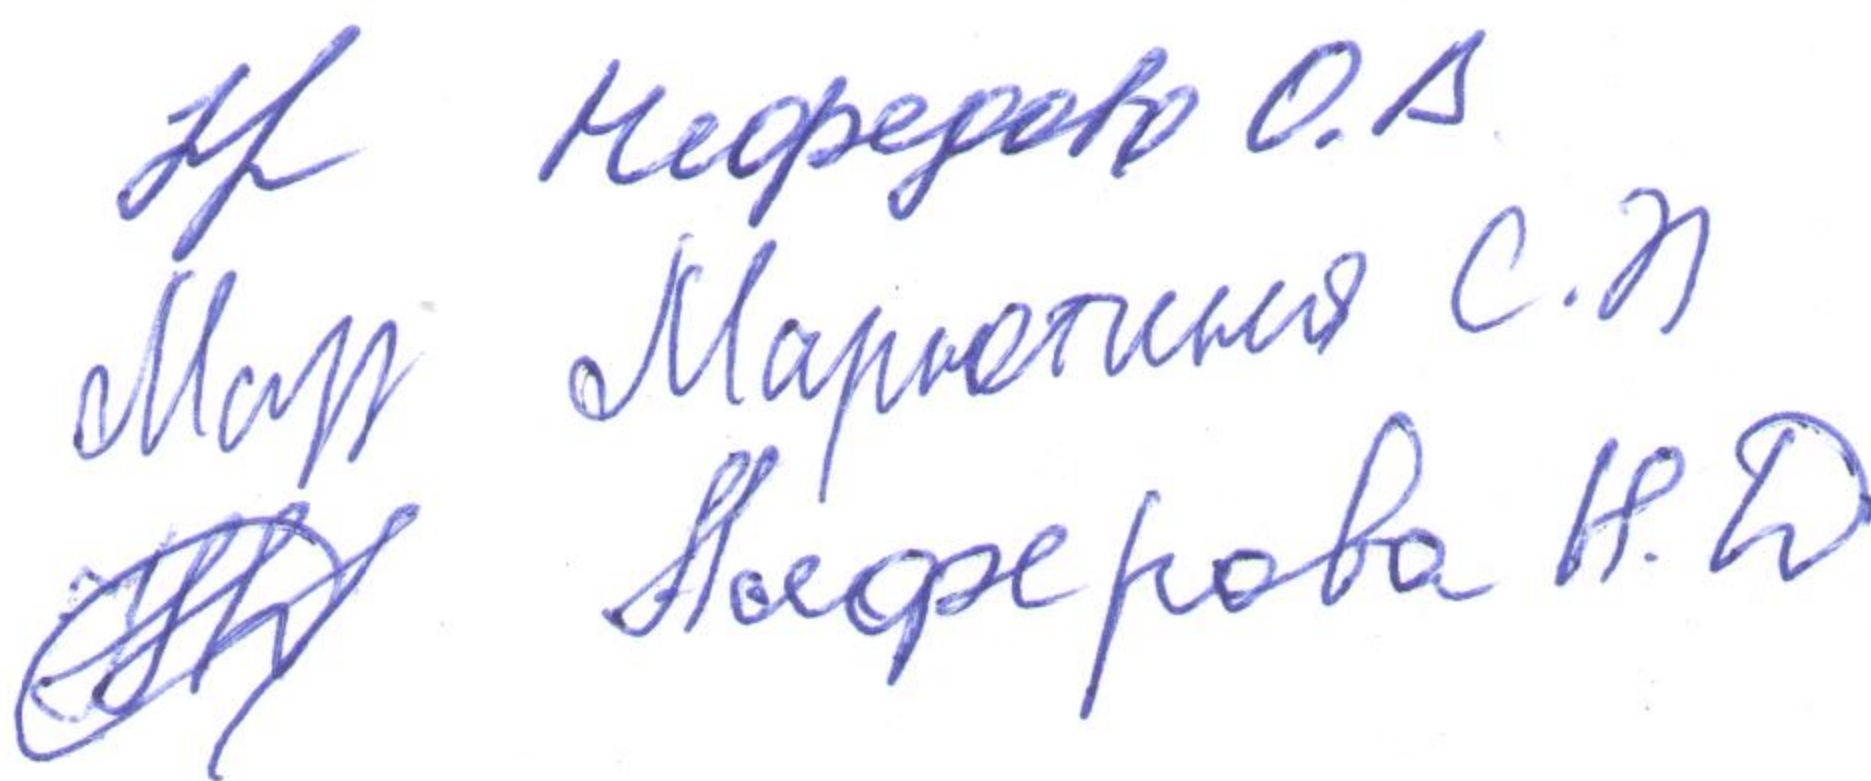 Нефедова О.В.
Мар Марютина С.П
Алферова Н.Д